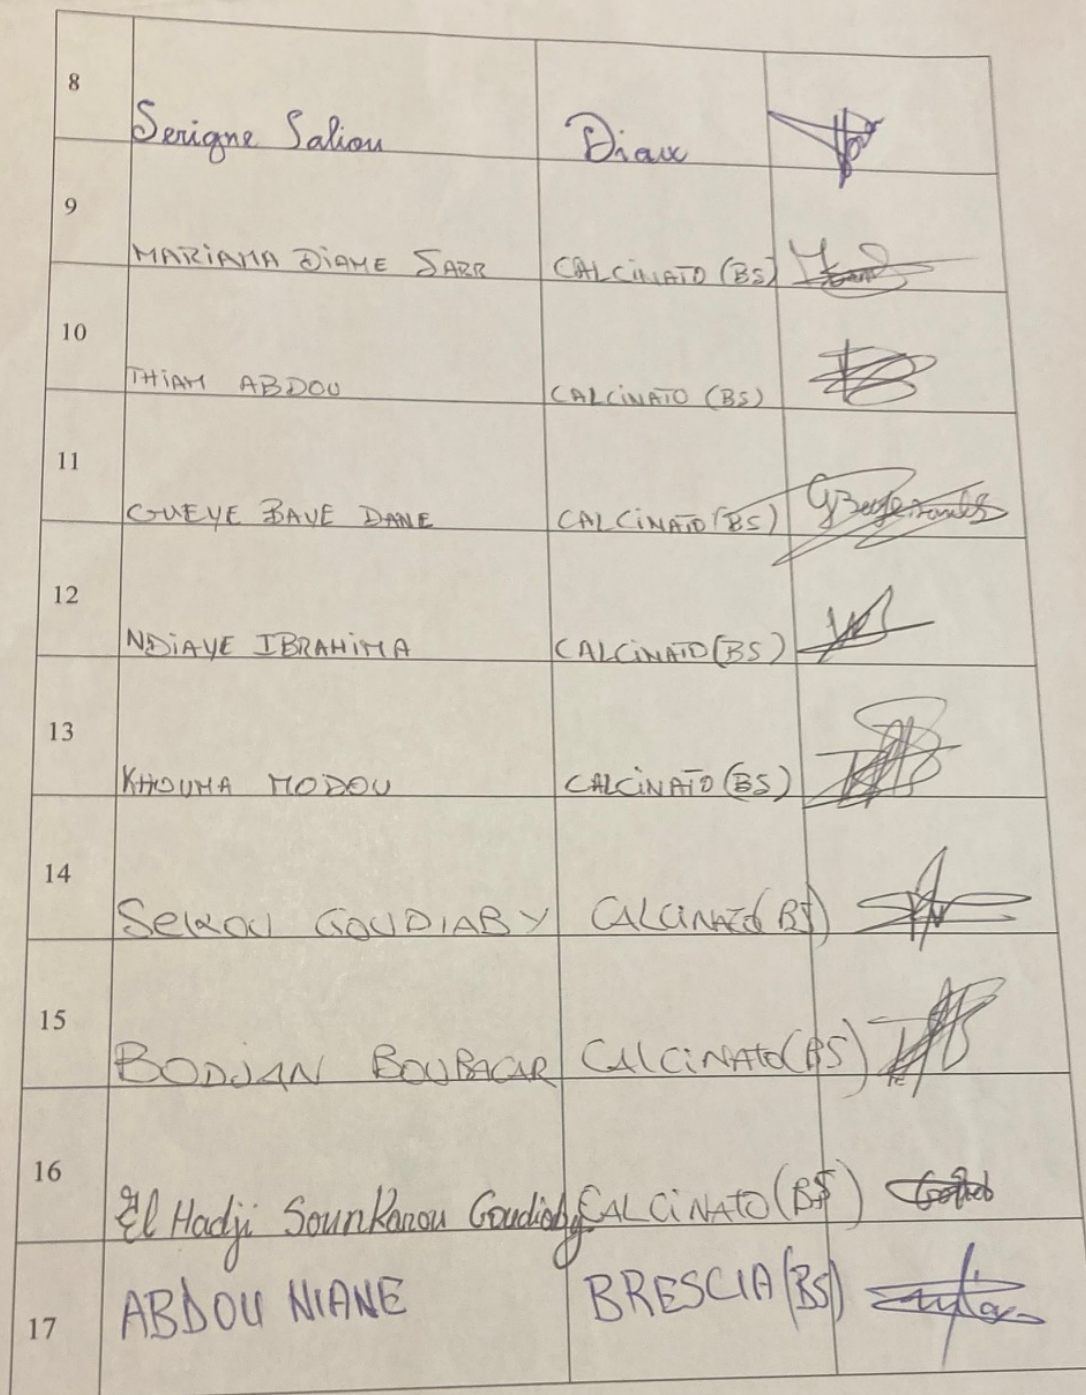 8 Serigne Saliou Diaw
9 MARIAMA DIAME SARR CALCINATO (BS)
10 THIAM ABDOU CALCINATO (BS)
11 GUEYE BAYE DANE CALCINATO (BS)
12 NDIAYE IBRAHIMA CALCINATO (BS)
13 KHOUMA MODOU CALCINATO (BS)
14 SEKOU GOUDIABY CALCINATO (BS)
15 BODJAN BOUBACAR CALCINATO (BS)
16 El Hadji Sounkarou Goudiaby CALCINATO (BS)
17 ABDOU NIANE BRESCIA (BS)